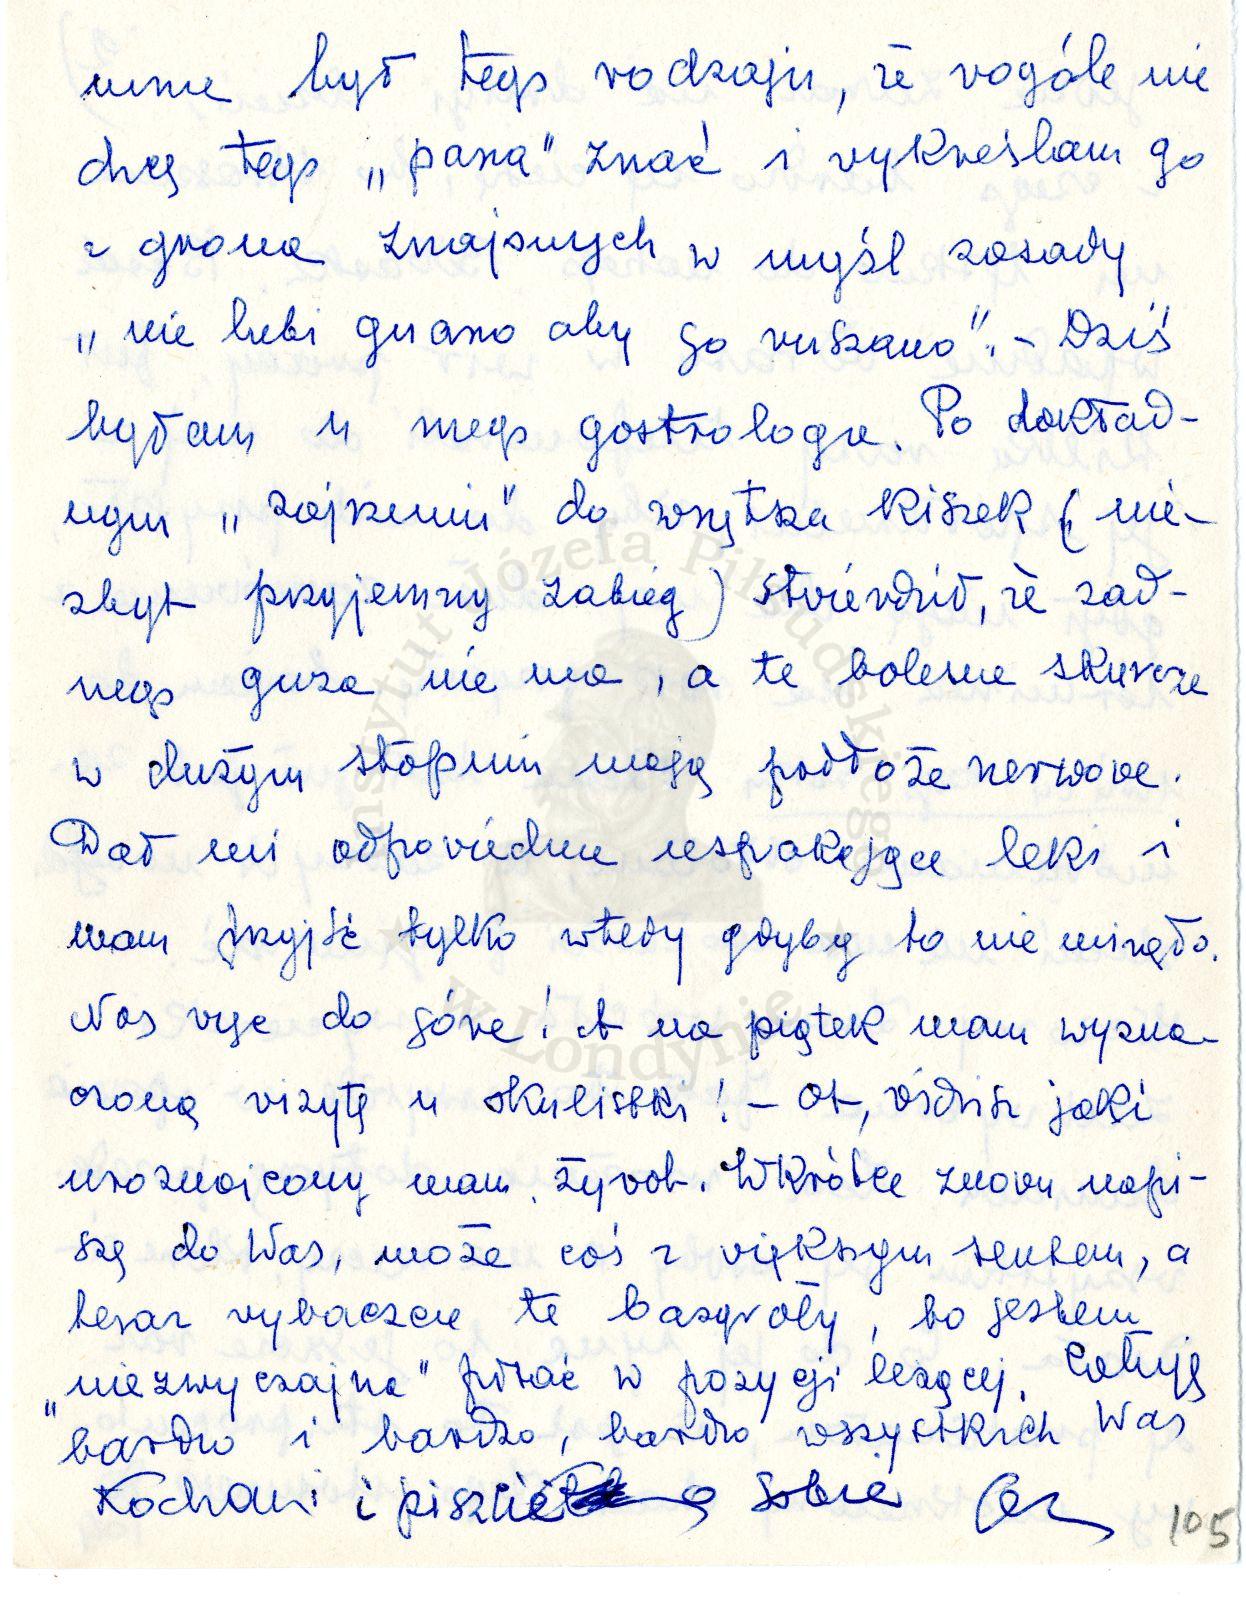 mnie był tego rodzaju, że wogóle nie
chcę tego „pana" znać i wykreślam go
z grona znajomych w myśl zasady
„nie lubi guano aby go ruszano". – Dziś
byłam u mego gastrologa. Po dokład-
nym „zajrzeniu" do wnętrza kiszek (nie-
zbyt przyjemny zabieg) stwierdził, że żad-
nego guza nie ma, a te bolesne skurcze
w dużym stopniu mają podłoże nerwowe.
Dał mi odpowiednie uspakajające leki i
mam przyjść tylko wtedy gdyby to nie minęło.
Nos więc do góry! A na piątek mam wyzna-
czoną wizytę u okulistki! – Ot, widzisz jaki
urozmaicony mam żywot. Wkrótce znowu napi-
szę do Was, może coś z większym sensem, a
teraz wybaczcie te bazgroły, bo jestem
„niezwyczajna" pisać w pozycji leżącej. Całuję
bardzo i bardzo, bardzo wszystkich Was
Kochani i piszcie o sobie
105
Instytut Józefa Piłsudskiego
w Londynie